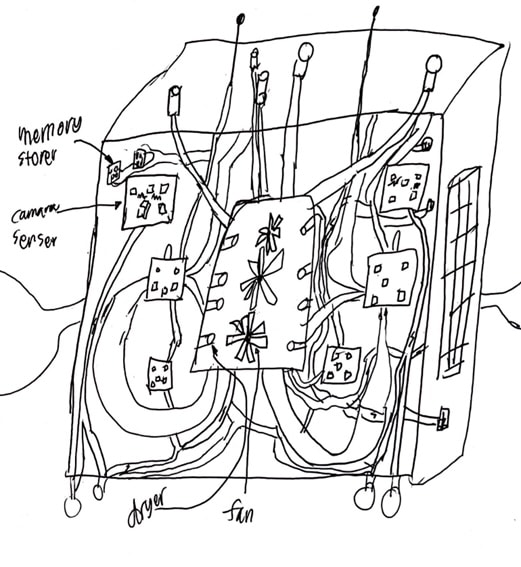 memory
storer
camara
senser
dryer
fan